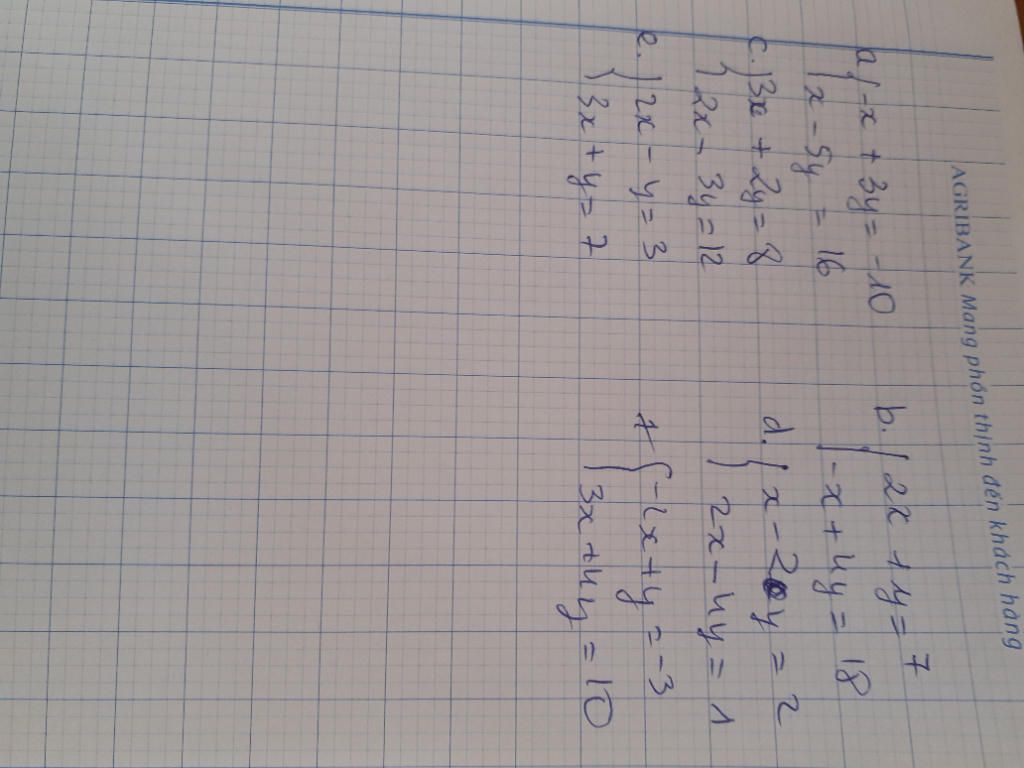 AGRIBANK Mang phồn thịnh đến khách hàng
a. { -x + 3y = -10
x - 5y = 16
b. { 2x + y = 7
-x + 4y = 18
c. { 3x + 2y = 8
2x - 3y = 12
d. { x - 2y = 2
2x - 4y = 1
e. { 2x - y = 3
3x + y = 7
f. { -2x + y = -3
3x + 4y = 10